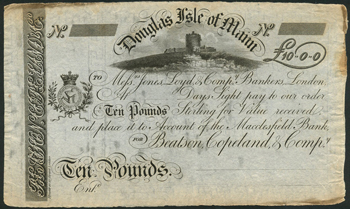 No
No
Douglas Isle of Mann
£10-0-0
To Messrs Jones, Loyd, & Compy. Bankers, London.
Days Sight pay to our order
Ten Pounds Sterling for Value received
and place it to Account of the Macclesfield Bank
FOR
Beatson, Copeland, & Compy.
Ten Pounds.
Entd.